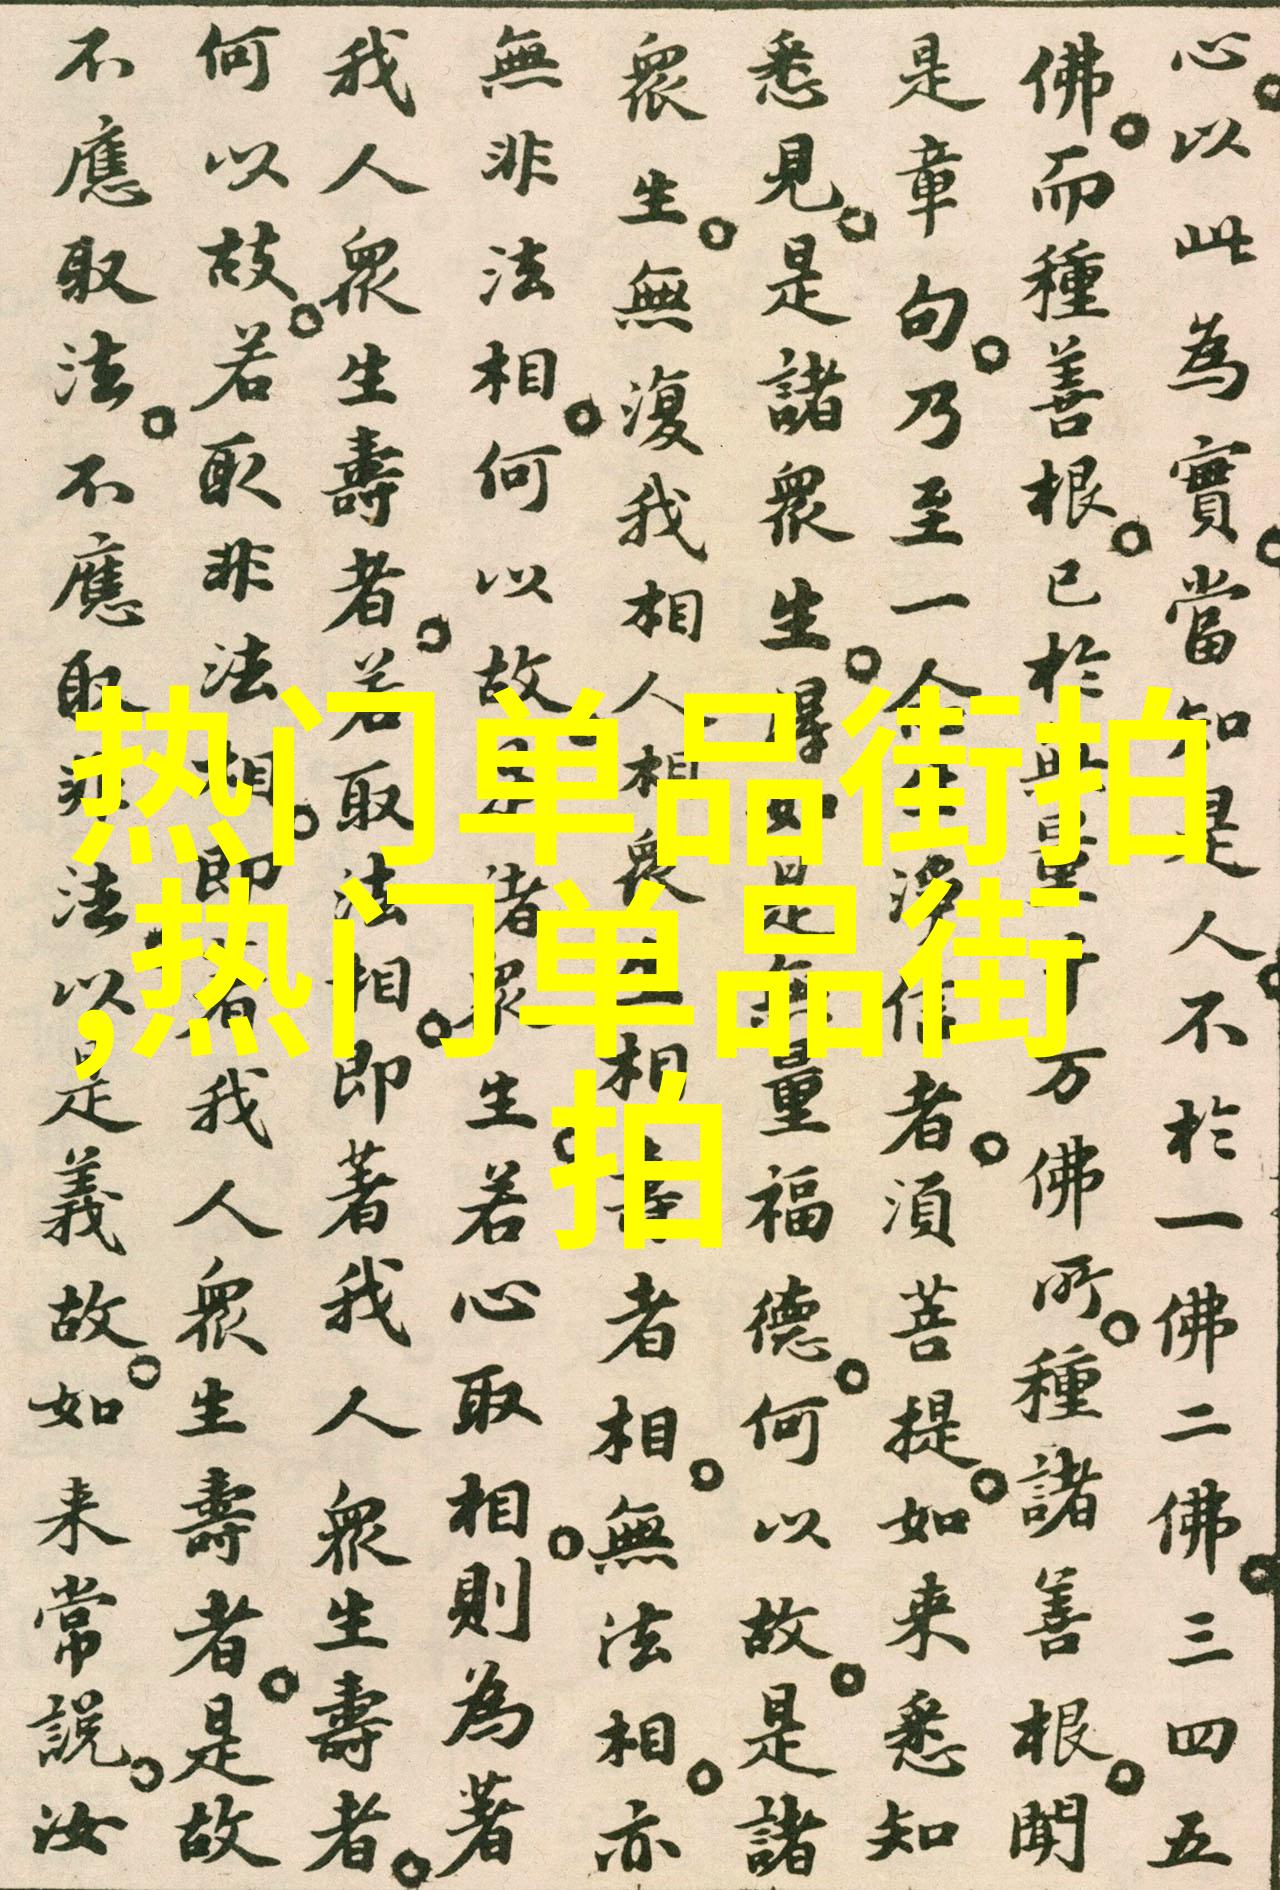 心。以此為實。當知是人。不於一佛二佛。三四五
佛。而種善根。已於無量千万佛所。種諸善根。聞
是章句。乃至一念生淨信者。須菩提。如来悉知
悉見。是諸眾生。得如是無量福德。何以故。是諸
眾生。無復我相人相眾生相壽者相。無法相。亦
無非法相。何以故。是諸眾生。若心取相。則為著
我人眾生壽者。若取法相。即著我人眾生壽者。
何以故。若取非法相。即著我人眾生壽者。是故
不應取法。不應取非法。以是義故。如来常說。汝
热门单品街拍
,热门单品街
拍